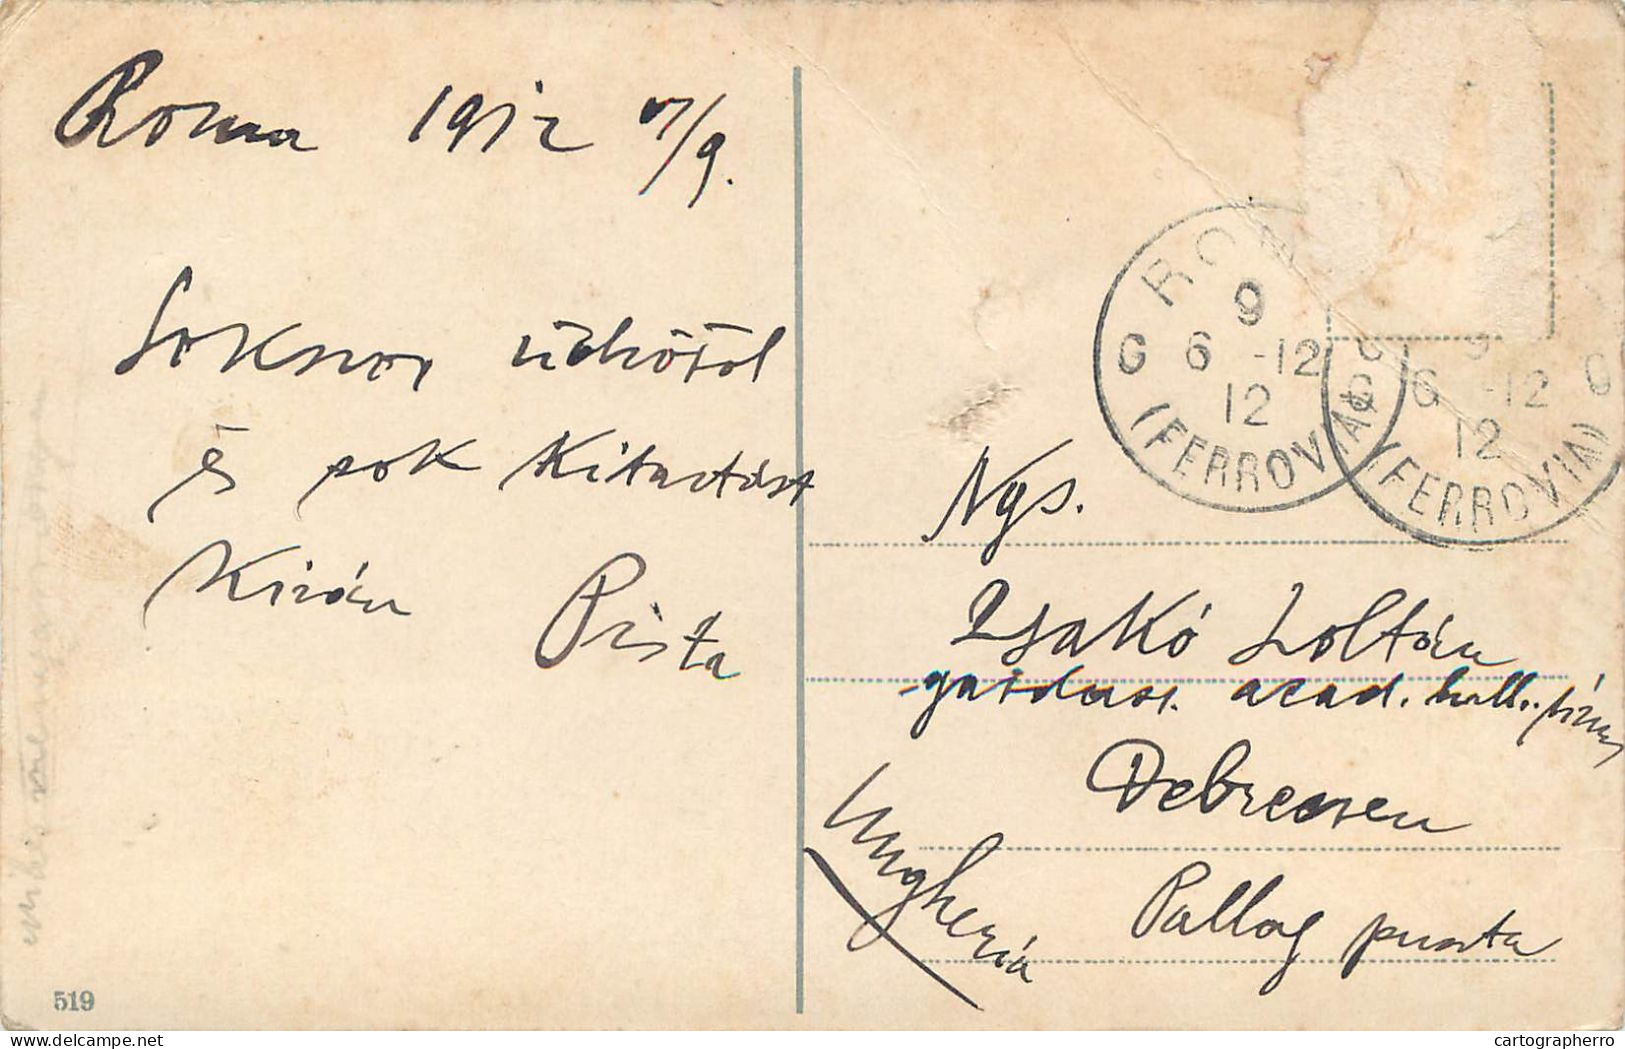 Roma 1912 VI/9.
Sokszor üdvözöl
és sok kitartást
kiván Pista
519
ROM
9
G 6 -12 G
12
(FERROVIA)
9
G -12 G
12
(FERROVIA)
Ngs.
Zsakó Zoltán
gazdasz. acad. hallg.
Debreczen
Pallag puszta
Ungheria
cartographerro